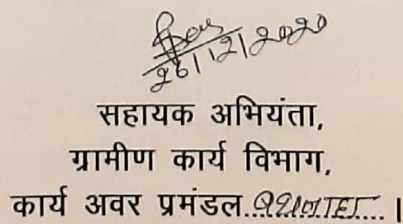 26/12/2020
सहायक अभियंता,
ग्रामीण कार्य विभाग,
कार्य अवर प्रमंडल.................... ।